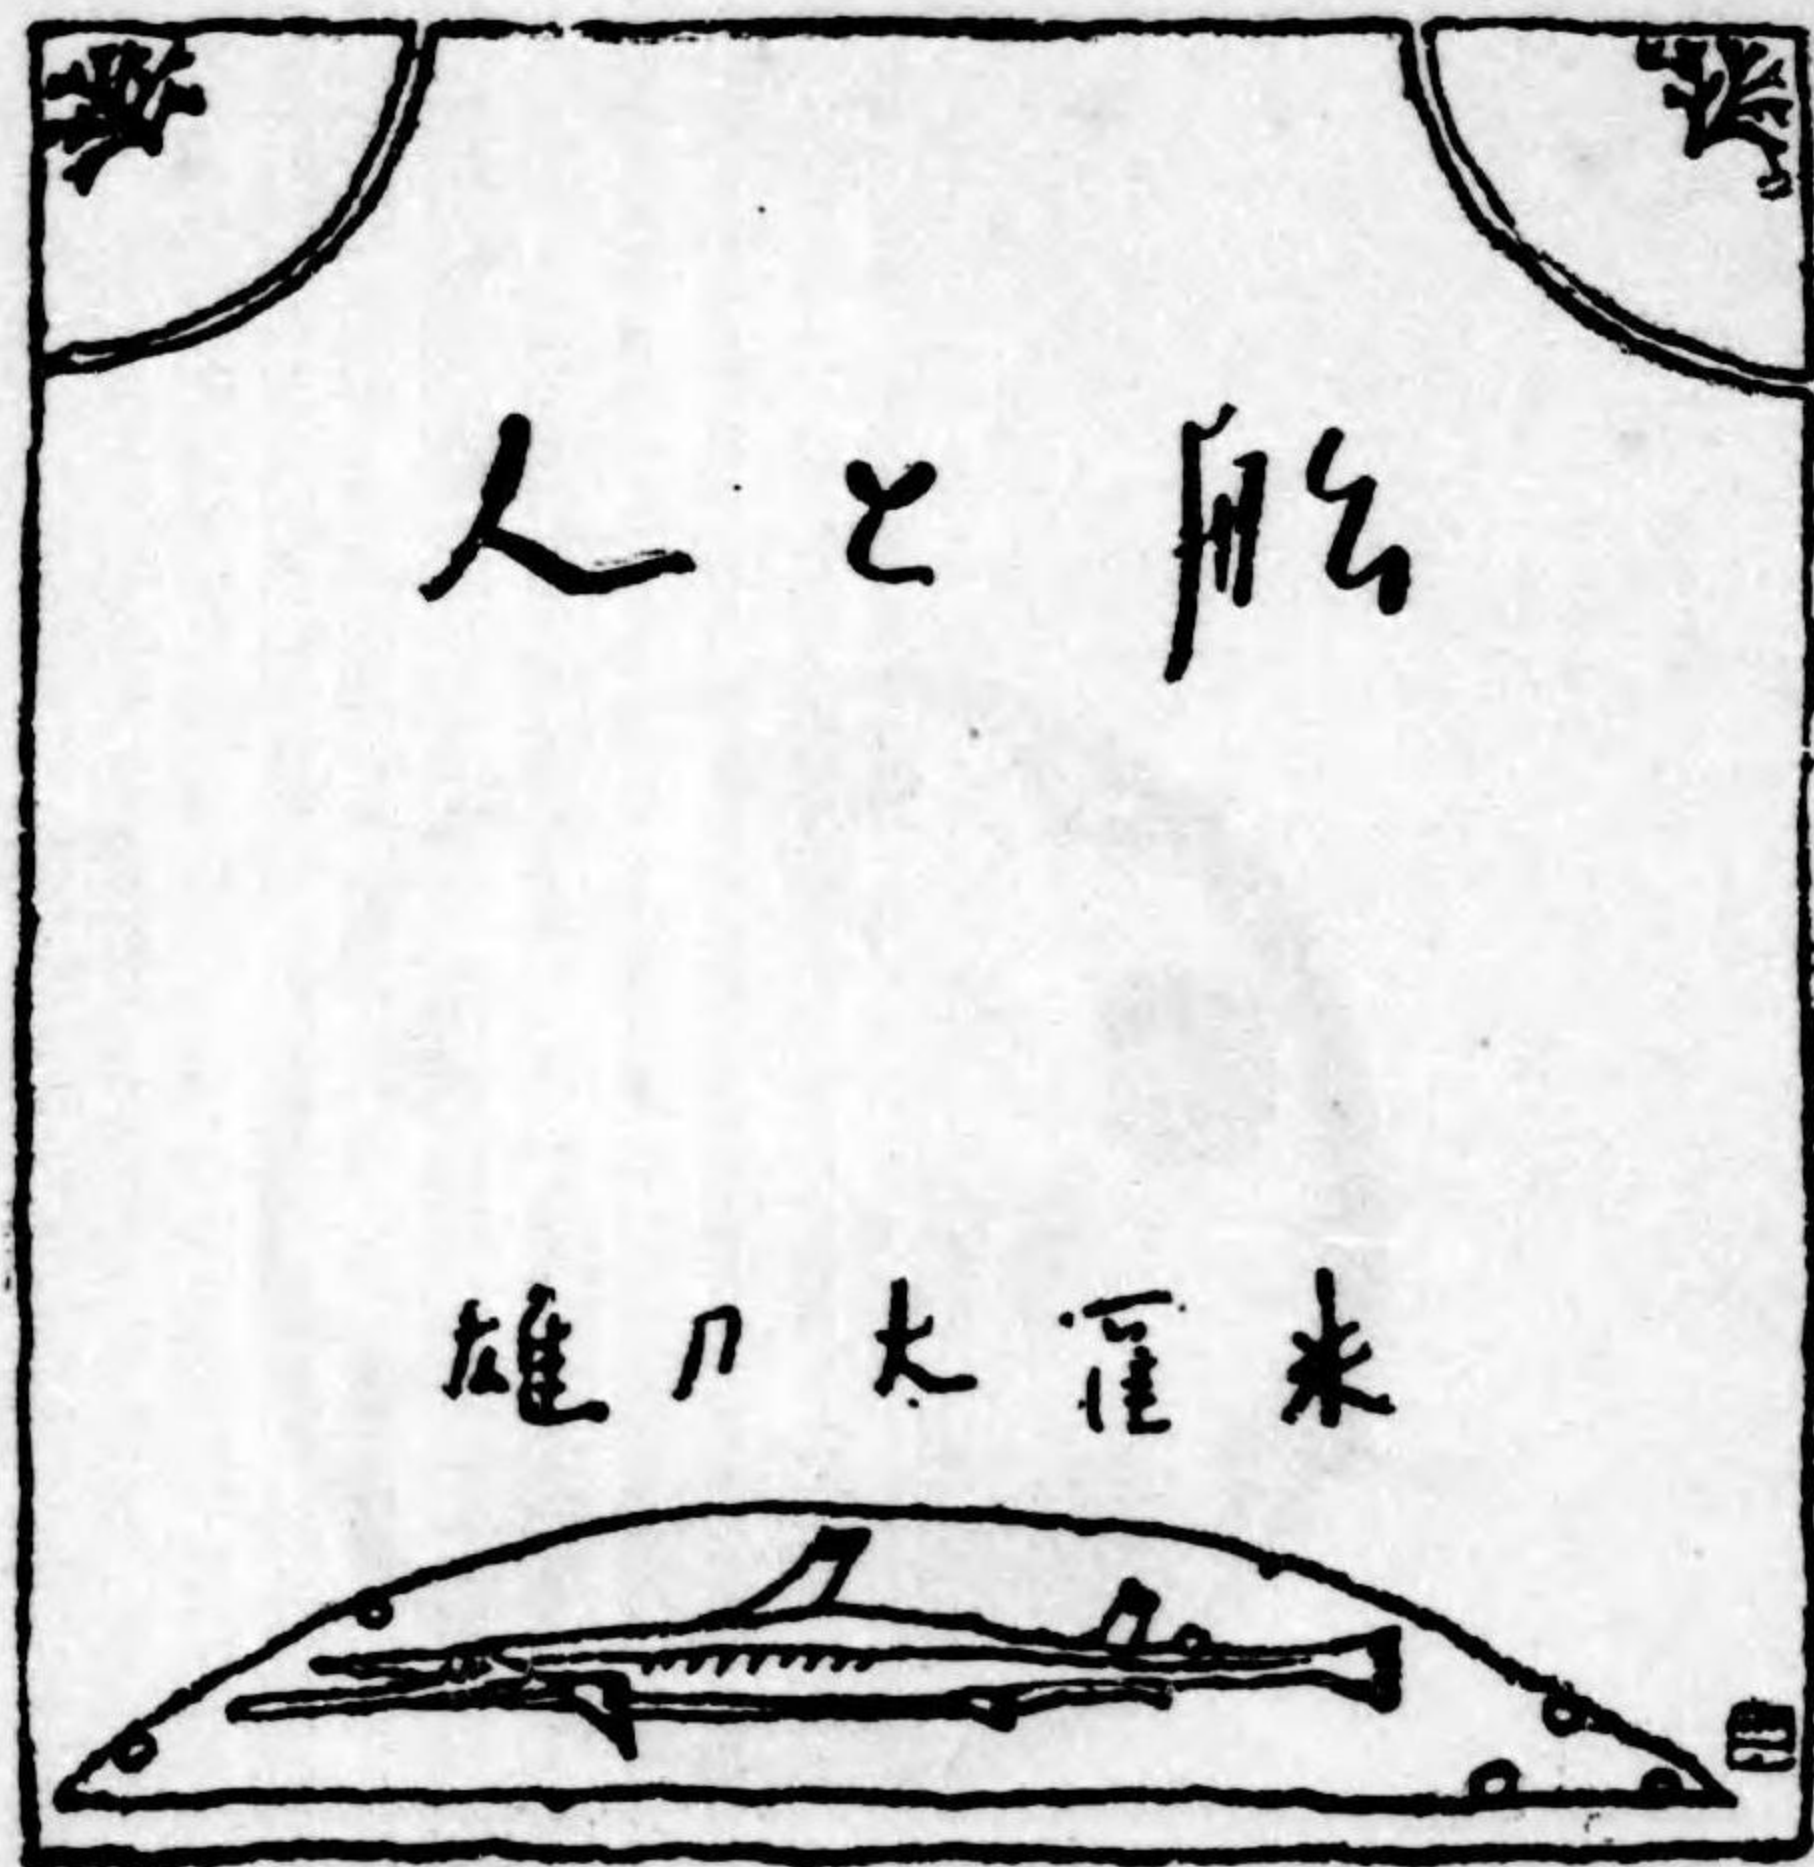 船と人
米窪太刀雄